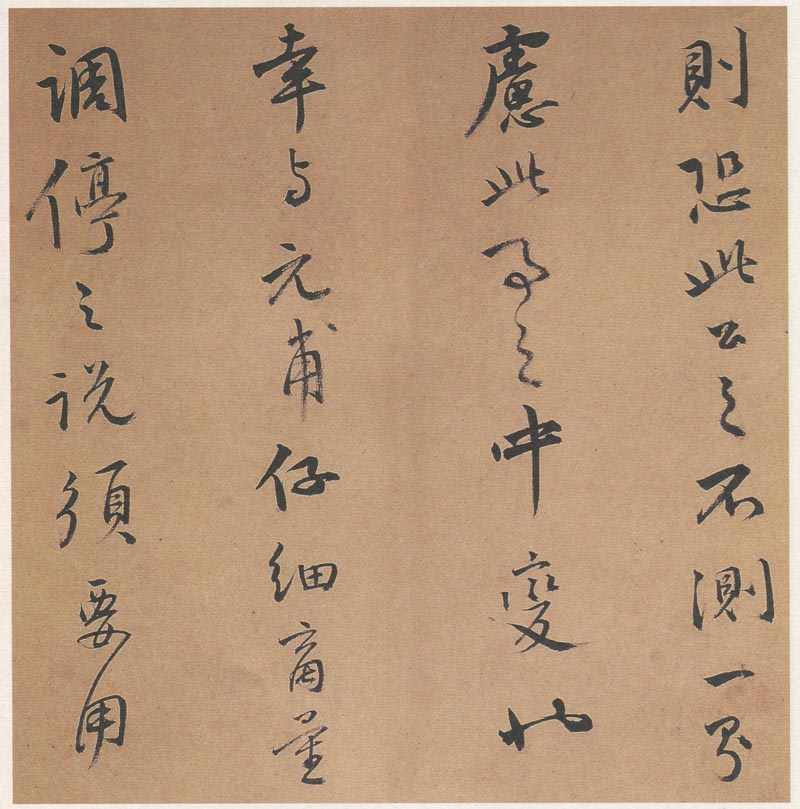 則恐此公之不測一則
慮此事之中變也
幸与元甫仔細商量
調停之説須要用